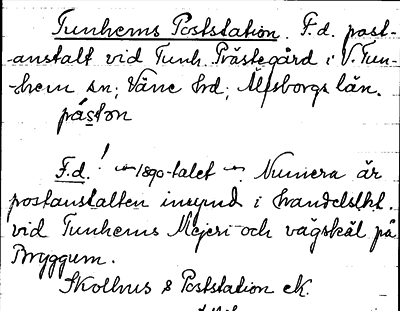 Tunhems Poststation. F.d. post-
-anstalt vid Tunh. Prästegård i V. Tun-
-hem sn; Väne hrd; Älfsborgs län.
påstøn
F.d.! 1890-talet. Numera är
postanstalten inrymd i handelslkl.
vid Tunhems Mejeri och vägskäl på
Bryggum.
Skolhus & Poststation ek.